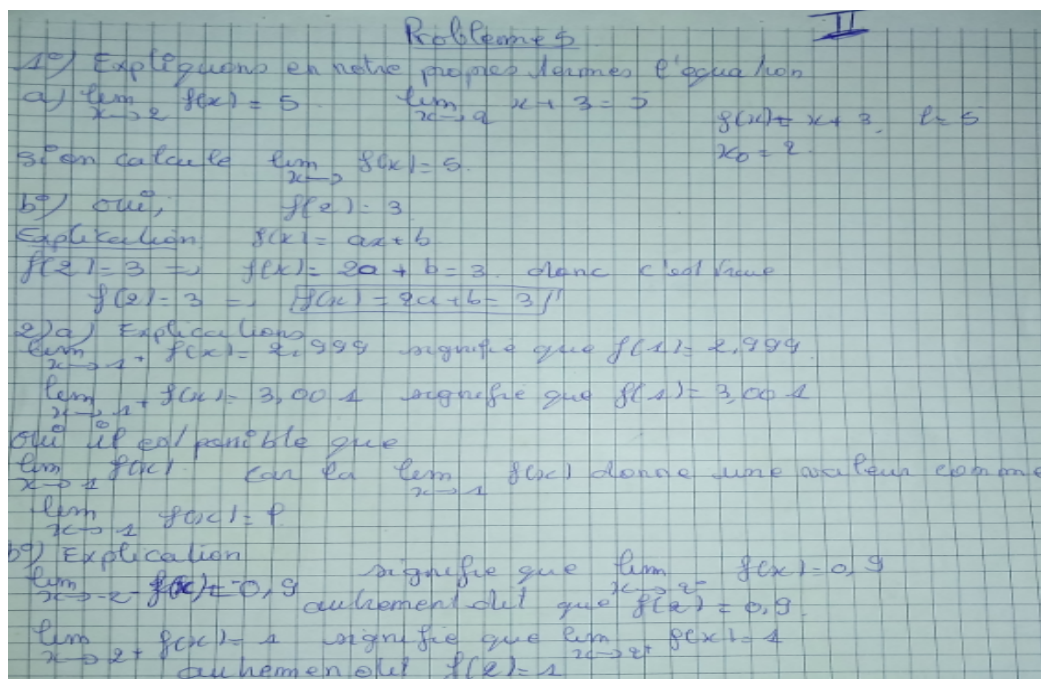 Problemes II
1°) Expliquons en notre propres termes l'equation
a) lim x→2 f(x) = 5 lim x→2 x + 3 = 5 f(x) = x + 3 l = 5
x0 = 2
si on calcule lim x→2 f(x) = 5.
b°) oui, f(2) = 3
Explication f(x) = ax + b
f(2) = 3 => f(x) = 2a + b = 3. donc c'est vraie
f(2) = 3 => f(x) = 2a + b = 3
2) a) Explications
lim x→1+ f(x) = 2,999 signifie que f(1) = 2,999.
lim x→1+ f(x) = 3,001 signifie que f(1) = 3,001
oui il est possible que
lim x→1 f(x) car la lim x→1 f(x) donne une valeur comme
lim x→1 f(x) = l
b°) Explication
lim x→-2- f(x) = 0,9 signifie que lim x→2- f(x) = 0,9
autrement dit que f(2) = 0,9.
lim x→2+ f(x) = 1 signifie que lim x→2+ f(x) = 1
autremen dit f(2) = 1